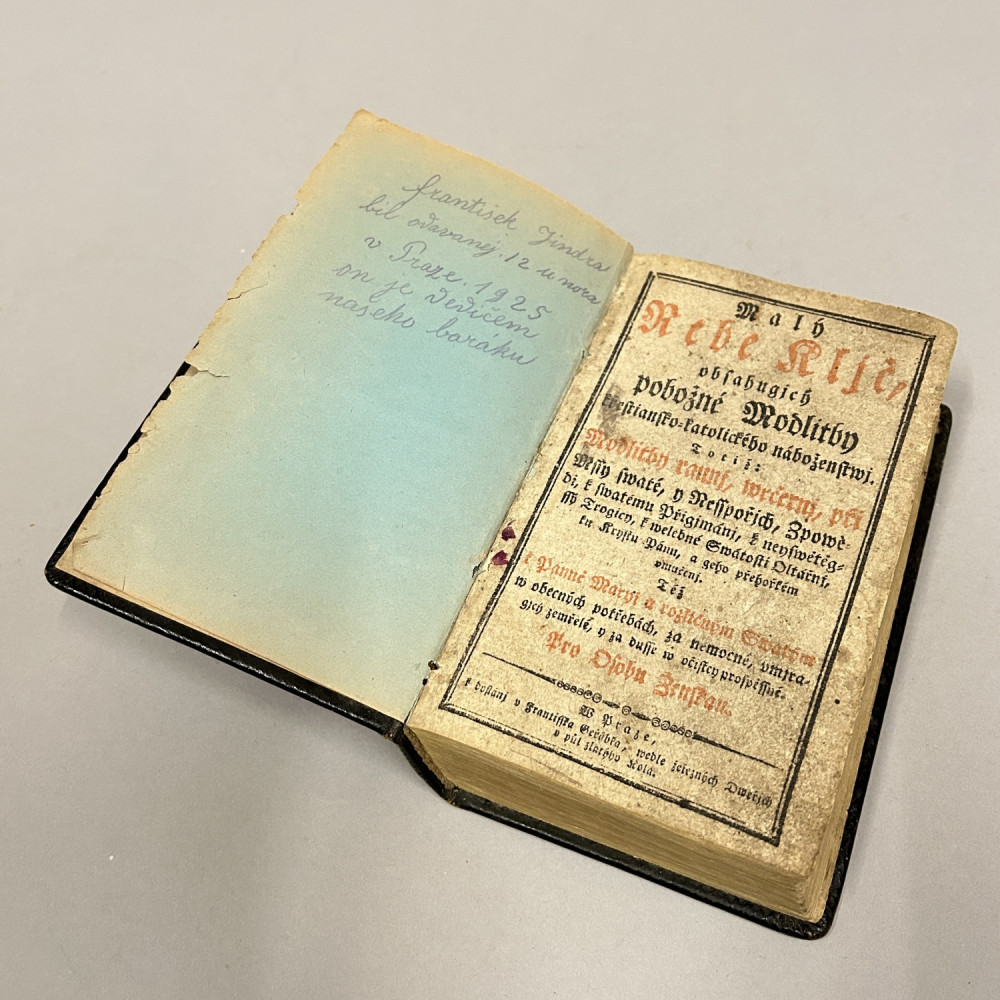 františek Jindra
bil odavanej. 12 unora
v Praze. 1925
on je dědičem
našeho baráku
Malý
Nebe Kljč,
obsahugjcý
pobožné Modlitby
křestiansko-katolického náboženstwj.
Totiž:
Modlitby rannj, wečernj, při
Mssy swaté, y Nesspořjch, Zpowě-
di, k swatému Přigjmánj, k neyswětěg-
ssý Trogicy, k welebné Swátosti Oltářnj,
ku Krystu Pánu, a geho přehořkém
vmučenj.
Též
k Panně Maryi a rozličným Swatým
w obecných potřebách, za nemocné, vmjra-
gjcý zemřelé, y za dusse w očistcy prospěssné.
Pro Osobu Ženskau.
W Praze,
k dostánj v Frantisska Geřábka, wedle železných Dweřjch
v půl zlatýho Kola.